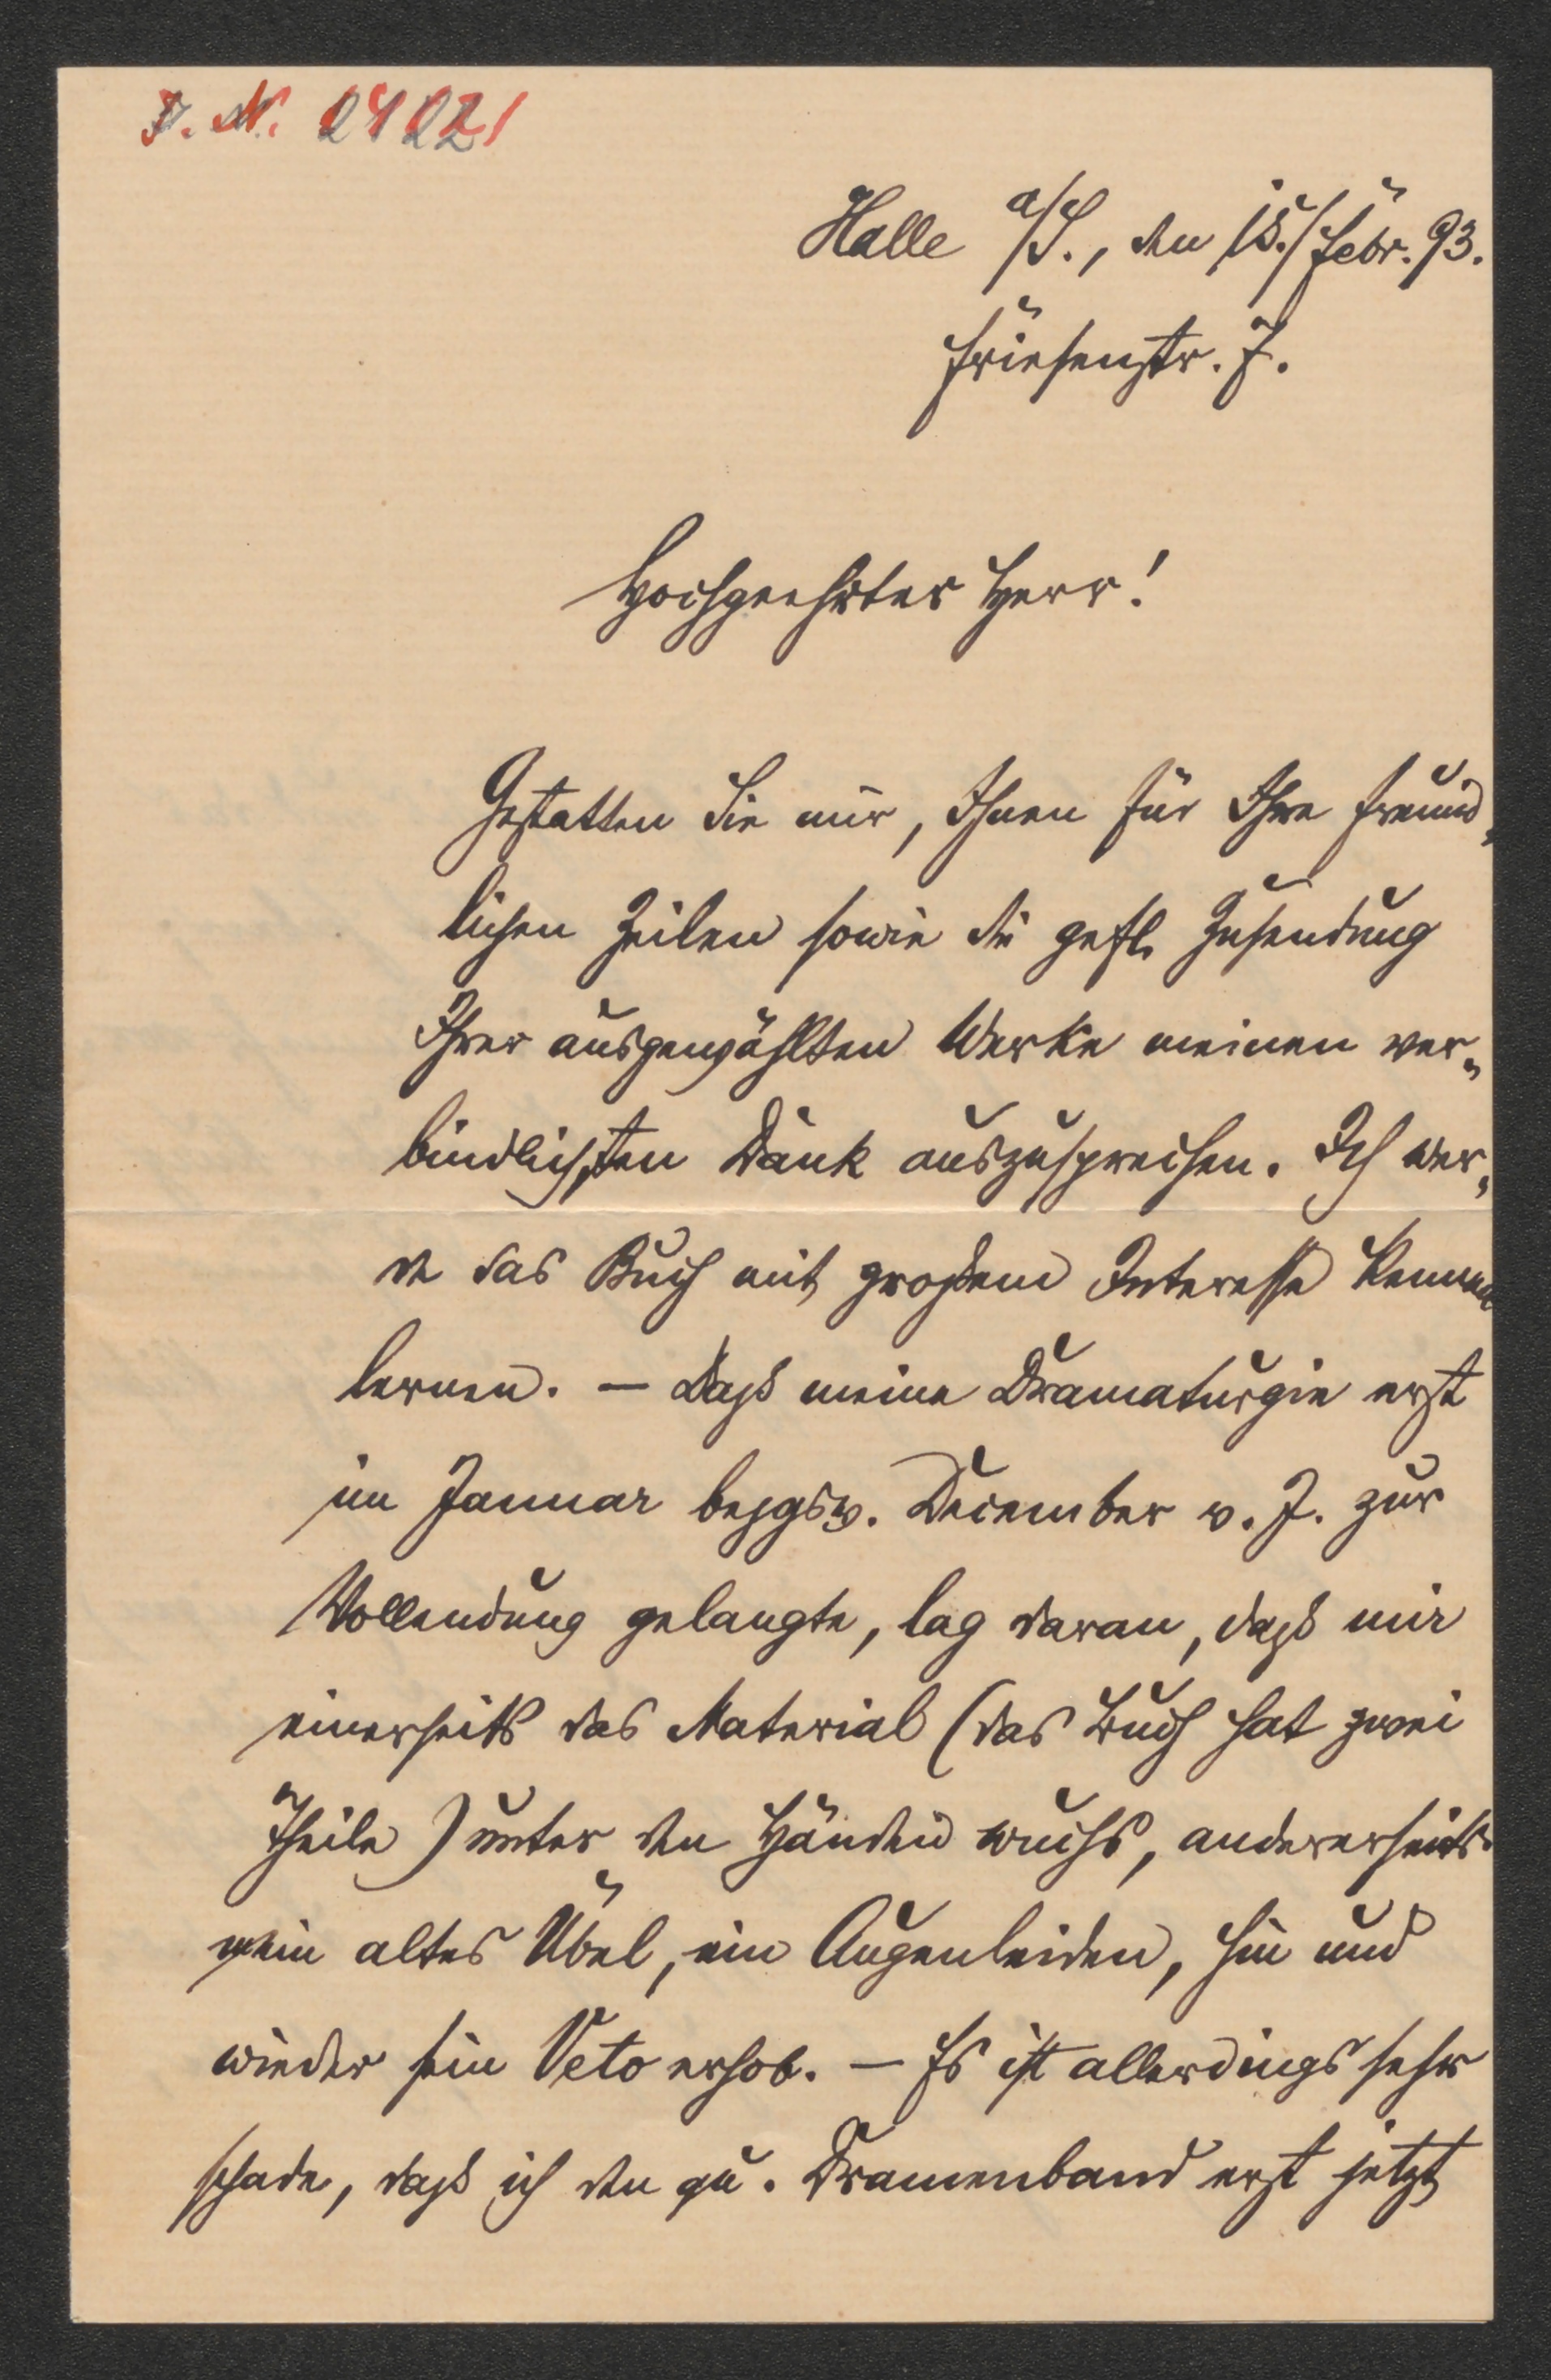 J. N. 24221
Halle a/S., den 15./Febr. 93.
Friesenstr. 7.
Hochgeehrter Herr!
Gestatten Sie mir, Ihnen für Ihre freund-
lichen Zeilen sowie die gefl. Zusendung
Ihrer ausgewählten Werke meinen ver-
bindlichsten Dank auszusprechen. Ich wer-
de das Buch mit großem Interesse kennen
lernen. — Daß meine Dramaturgie erst
im Januar bezgsw. December v. J. zur
Vollendung gelangte, lag daran, daß mir
einerseits das Material (das Buch hat zwei
Theile) unter den Händen wuchs, andererseits
mein altes Übel, ein Augenleiden, hin und
wieder sein Veto erhob. — Es ist allerdings sehr
schade, daß ich den qu. Dramenband erst jetzt